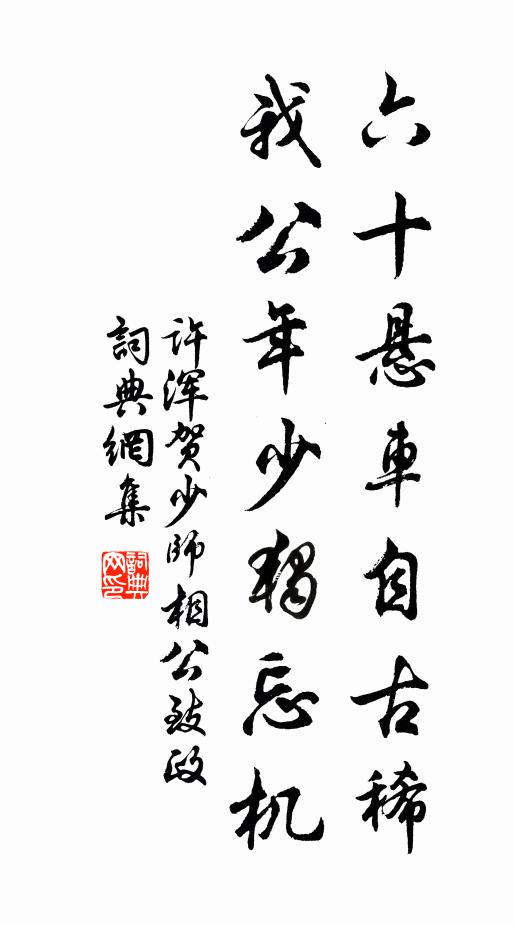 六十悬車自古稀
我公年少獨忘机
许渾贺少師相公致政
詞典網集
詞典網印